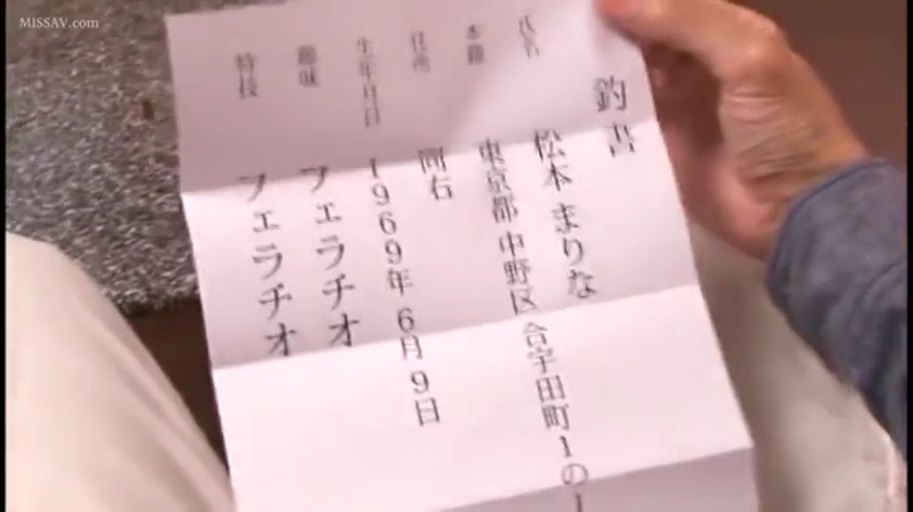 MISSAV.com
釣書
氏名 松本まりな
本籍 東京都中野区合宇田町1の1
住所 同右
生年月日 1969年6月9日
趣味 フェラチオ
特技 フェラチオ